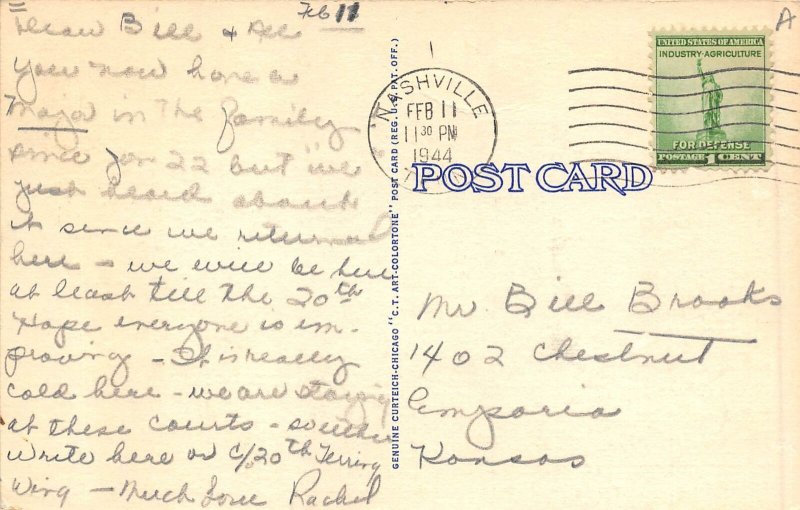 Feb 11
Dear Bill & All
You now have a
Major in the family
since Jan 22 but we
just heard about
it since we returned
here - we will be here
at least till the 20th
Hope everyone is im-
proving - It is really
cold here - we are staying
at these Courts - so either
write here or c/o 20th Ferring
Wing - Much Love Rachel
GENUINE CURTEICH-CHICAGO "C.T. ART-COLORTONE" POST CARD (REG. U.S. PAT. OFF.)
NASHVILLE
FEB 11
11 30 PM
1944
UNITED STATES OF AMERICA
INDUSTRY-AGRICULTURE
FOR DEFENSE
POSTAGE 1 CENT
A
POST CARD
Mr Bill Brooks
1402 Chestnut
Emporia
Kansas